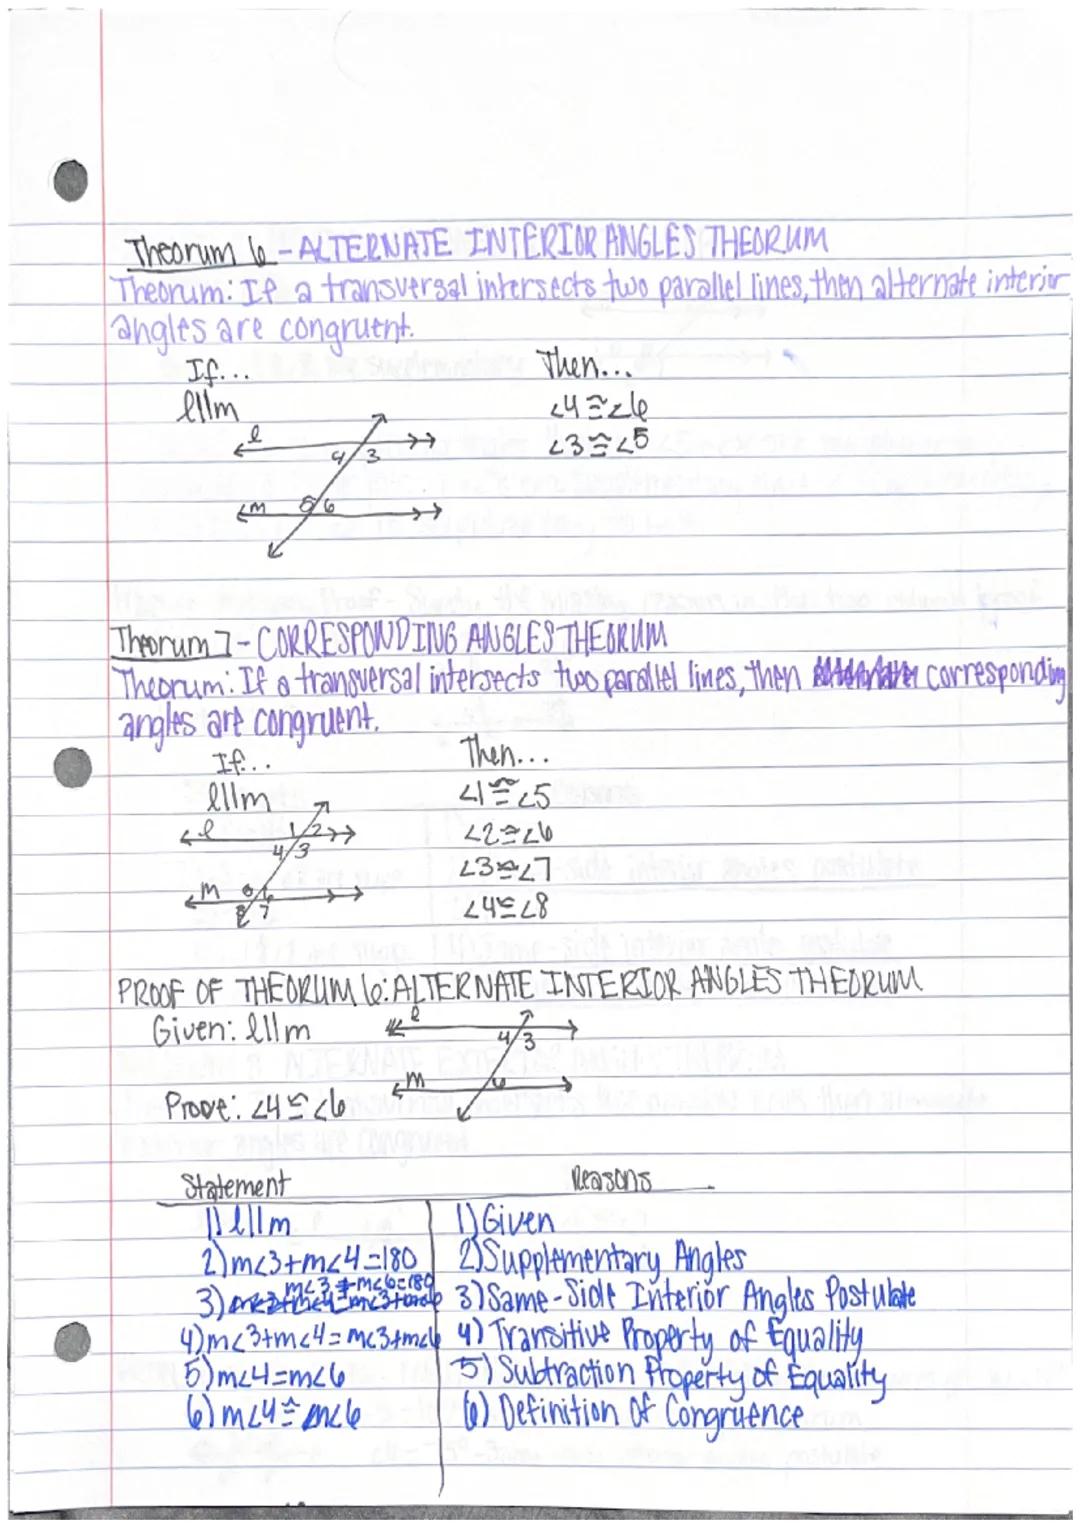 Theorum 6 - ALTERNATE INTERIOR ANGLES THEORUM
Theorum: If a transversal intersects two parallel lines, then alternate interior
angles are congruent.
If... Then...
l||m ∠4≅∠6
∠3≅∠5
l
4 3
m 5 6
Theorum 7 - CORRESPONDING ANGLES THEORUM
Theorum: If a transversal intersects two parallel lines, then corresponding
angles are congruent.
If... Then...
l||m ∠1≅∠5
l 1 2 ∠2≅∠6
4 3 ∠3≅∠7
m 5 6 ∠4≅∠8
8 7
PROOF OF THEORUM 6: ALTERNATE INTERIOR ANGLES THEORUM
Given: l||m
l
4 3
m 6
Prove: ∠4≅∠6
Statement Reasons
1) l||m 1) Given
2) m∠3+m∠4=180 2) Supplementary Angles
3) m∠3+m∠6=180 3) Same-Side Interior Angles Postulate
4) m∠3+m∠4=m∠3+m∠6 4) Transitive Property of Equality
5) m∠4=m∠6 5) Subtraction Property of Equality
6) m∠4≅m∠6 6) Definition Of Congruence